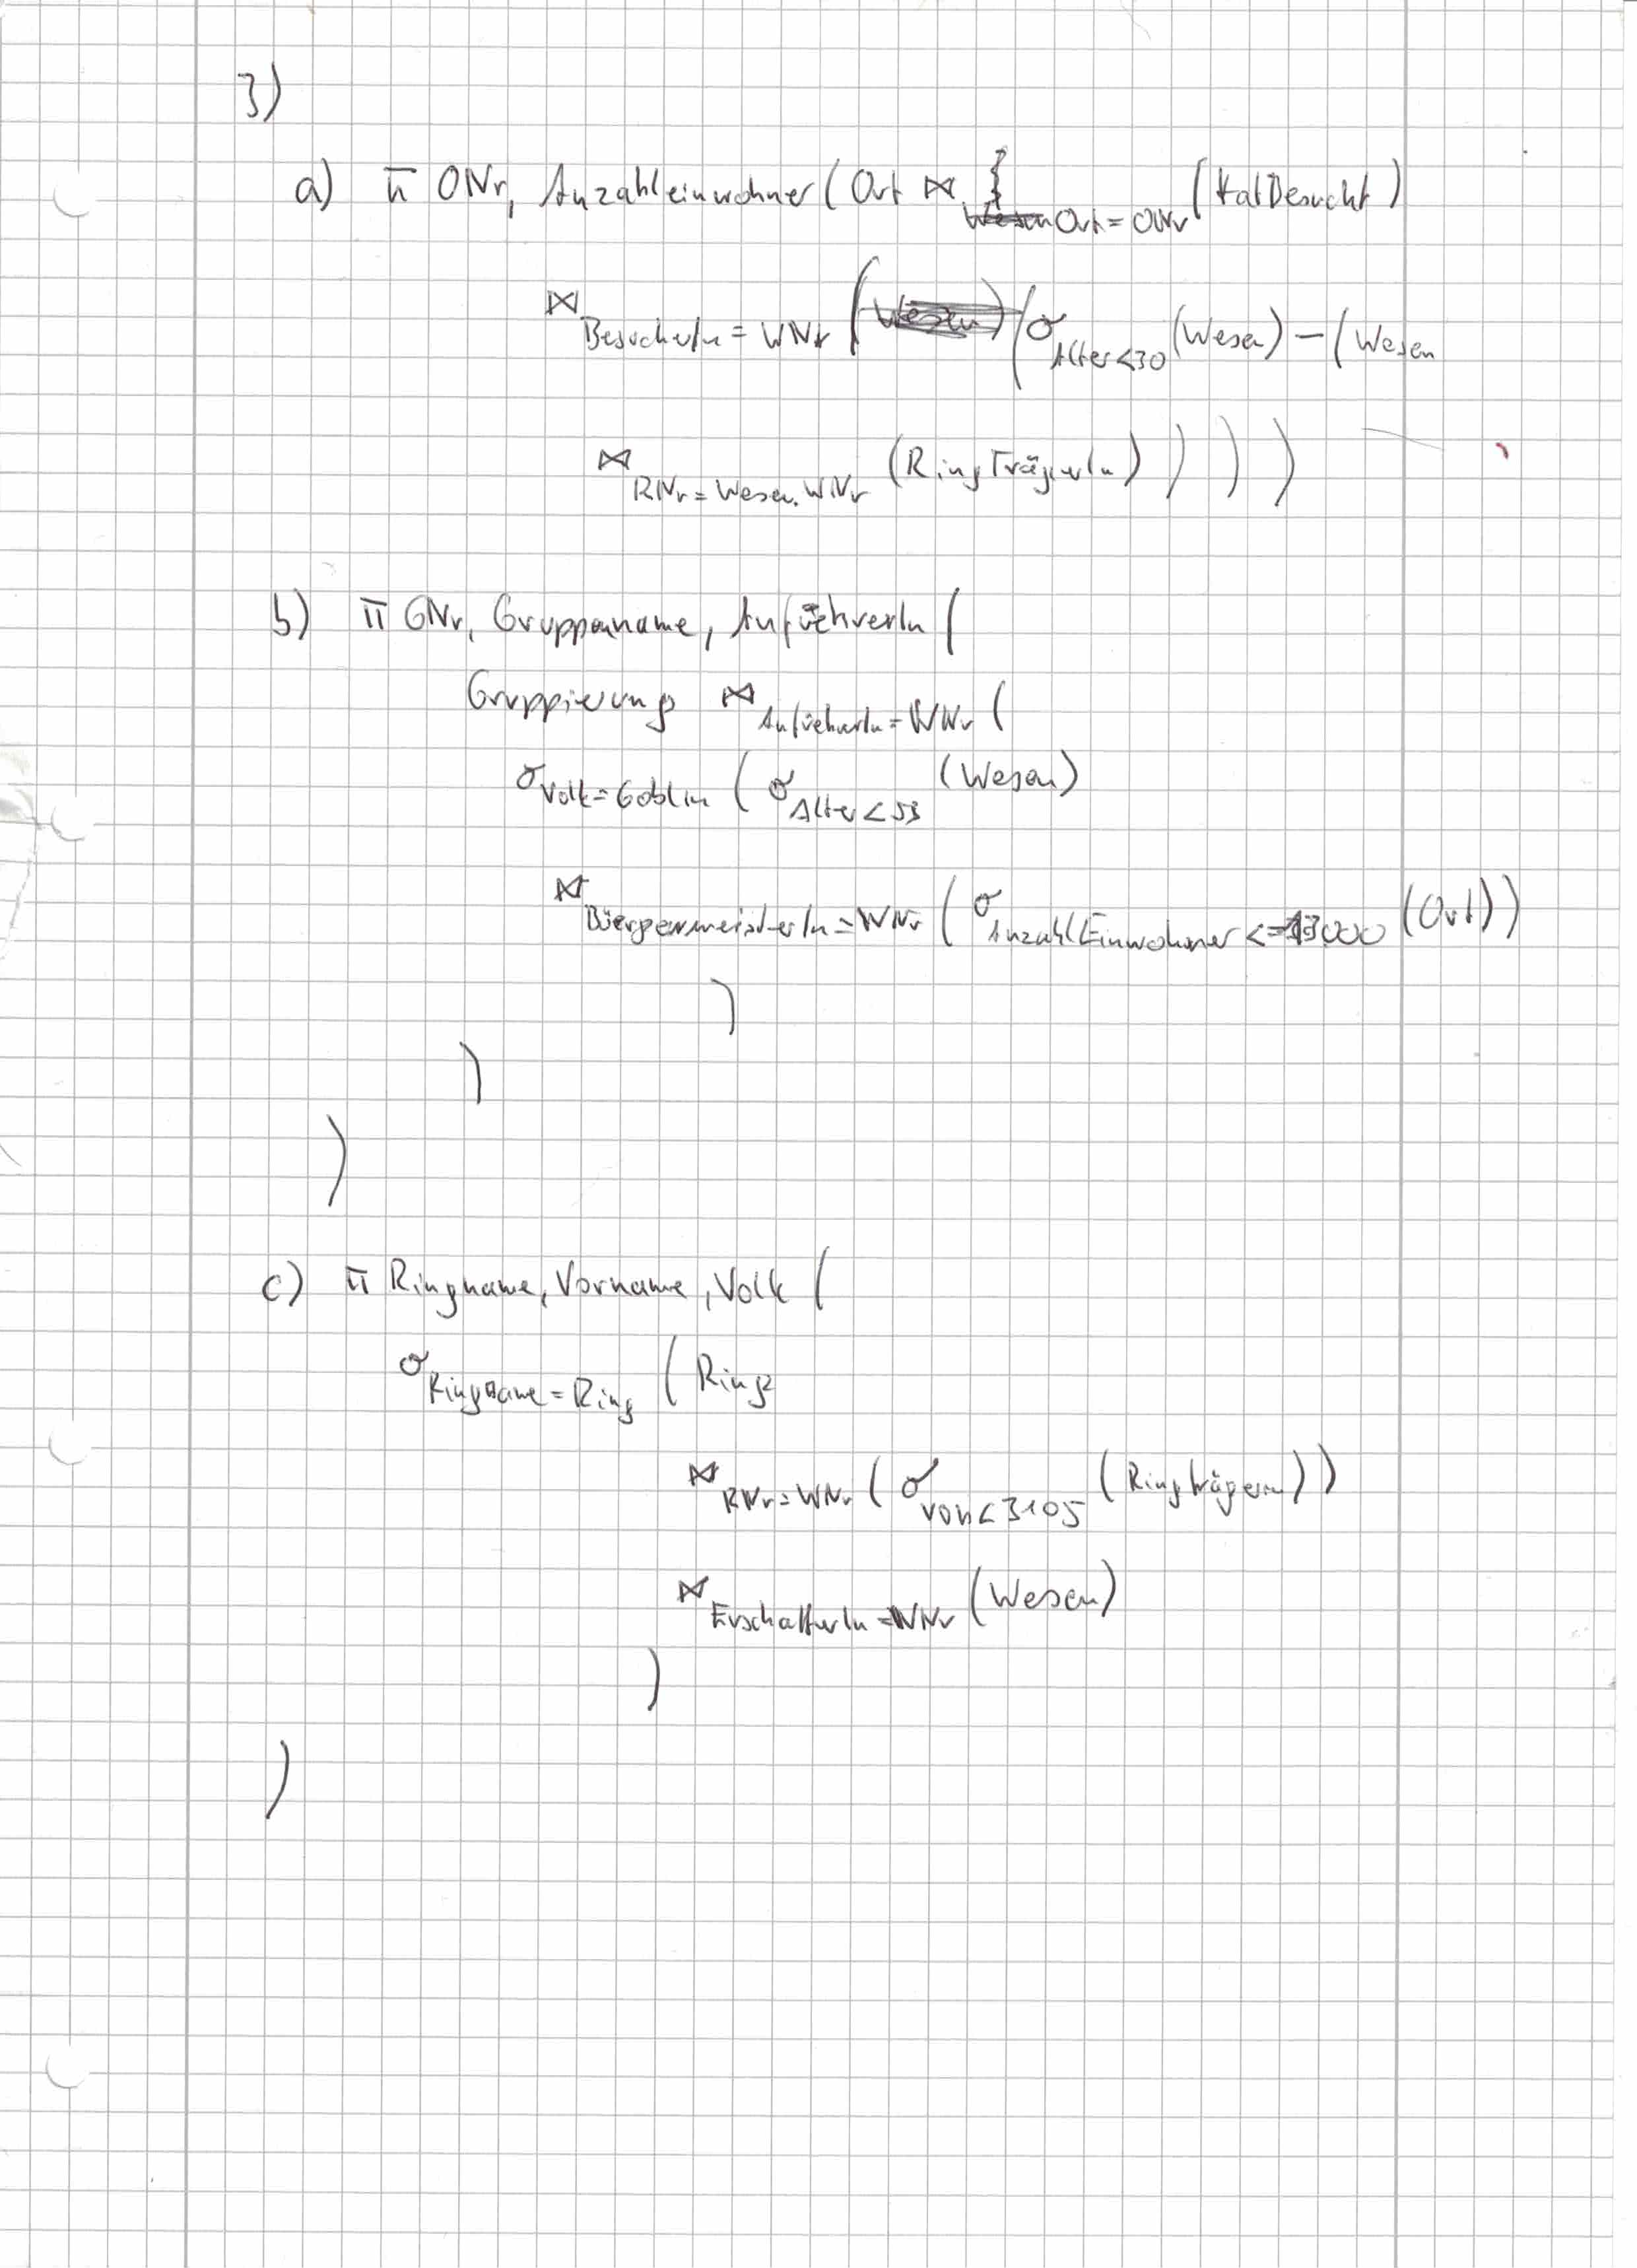 3)
a) π ONr, Anzahleinwohner (Ort ⋈ Ort = ONr (HatBesucht)
⋈ BesucherIn = WNr ( (σ Alter<30 (Wesen) – (Wesen
⋈ RNr = Wesen.WNr (RingTrägerIn) ) ) )
b) π GNr, Gruppenname, AnführerIn (
Gruppierung ⋈ AnfüherIn = WNr (
σ Volk = Goblin ( σ Alter < 53 (Wesen)
⋈ BüergermeisterIn = WNr ( σ AnzahlEinwohner <= 13000 (Ort))
)
)
)
c) π Ringname, Vorname, Volk (
σ Ringname = Ring ( Ring
⋈ RNr = WNr ( σ von < 3105 (Ringträgerin))
⋈ ErschafferIn = WNr (Wesen)
)
)